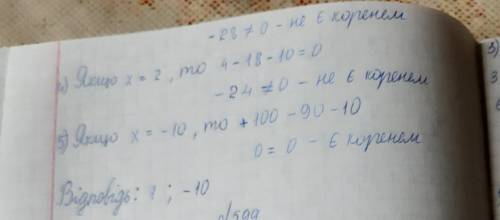 -28 ≠ 0 - не є коренем
4) Якщо x = 2, то 4-18-10=0
-24 ≠ 0 - не є коренем
5) Якщо x = -10, то +100-90-10
0 = 0 - є коренем
Відповідь: ; -10
№599
3)
3